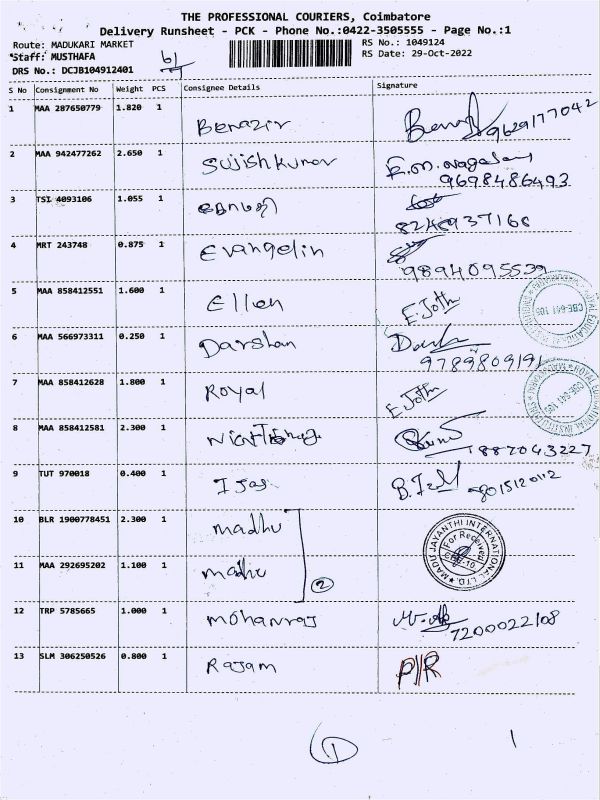 THE PROFESSIONAL COURIERS, Coimbatore
Delivery Runsheet - PCK - Phone No.:0422-3505555 - Page No.:1
Route: MADUKARI MARKET RS No.: 1049124
Staff: MUSTHAFA RS Date: 29-Oct-2022
DRS No.: DCJB104912401
S No Consignment No Weight PCS Consignee Details Signature
1 MAA 287650779 1.820 1 Benazir 9629177042
2 MAA 942477262 2.650 1 Sujishkumar
9698486493
3 TSI 4093106 1.055 1
8248937168
4 MRT 243748 0.875 1 Evangelin
9894095539
5 MAA 858412551 1.600 1 Ellen E. Joth
6 MAA 566973311 0.250 1 Darshan
9789809191
7 MAA 858412628 1.800 1 Royal E Joth
8 MAA 858412581 2.300 1
887043227
9 TUT 970018 0.400 1 Ijas 8015120112
10 BLR 1900778451 2.300 1 madhu
11 MAA 292695202 1.100 1 madhu
2
MADU JAYANTHI INTERNATIONAL LTD.
For Received
12 TRP 5785665 1.000 1 mohanraj
7200022108
13 SLM 306250526 0.800 1 Rajam P/R
1 1